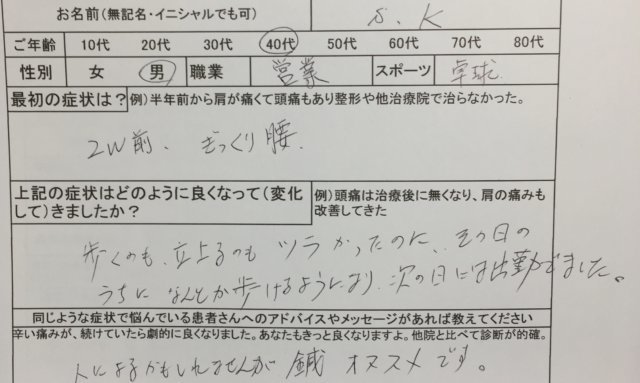 お名前(無記名・イニシャルでも可) S.K
ご年齢 10代 20代 30代 40代 50代 60代 70代 80代
性別 女 男 職業 営業 スポーツ 卓球
最初の症状は? 例)半年前から肩が痛くて頭痛もあり整形や他治療院で治らなかった。
2W前、ぎっくり腰.
上記の症状はどのように良くなって(変化 例)頭痛は治療後に無くなり、肩の痛みも
して)きましたか? 改善してきた
歩くのも、立上るのもツラかったのに、その日の
うちになんとか歩けるようになり、次の日には出勤できました。
同じような症状で悩んでいる患者さんへのアドバイスやメッセージがあれば教えてください
辛い痛みが、続けていたら劇的に良くなりました。あなたもきっと良くなりますよ。他院と比べて診断が的確。
人によるかもしれませんが鍼オススメです。